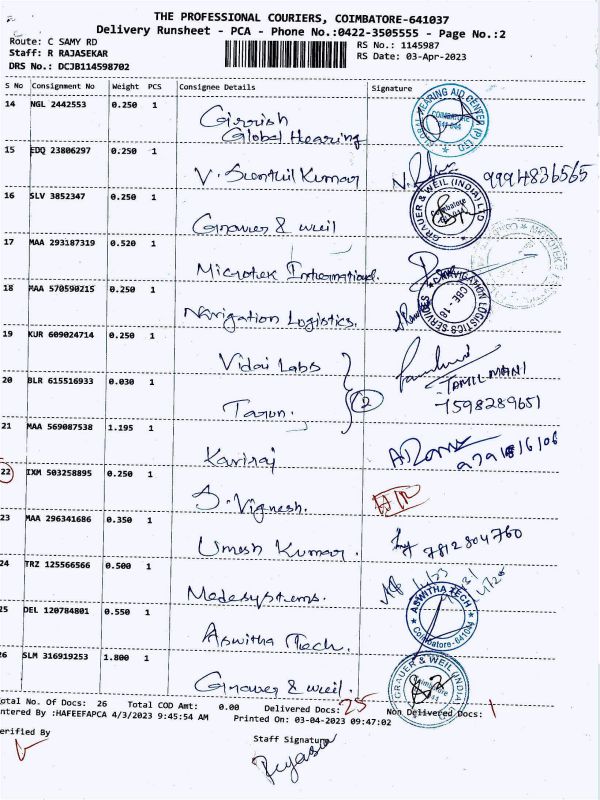 THE PROFESSIONAL COURIERS, COIMBATORE-641037
Delivery Runsheet - PCA - Phone No.:0422-3505555 - Page No.:2
Route: C SAMY RD
Staff: R RAJASEKAR
DRS No.: DCJB114598702
RS No.: 1145987
RS Date: 03-Apr-2023
S No Consignment No Weight PCS Consignee Details Signature
14 NGL 2442553 0.250 1
Girrish
Global Hearing
GLOBAL HEARING AID CENTER (P) LTD.
COIMBATORE
641 044
15 EDQ 23806297 0.250 1
V. Senthil Kumar
9994836565
16 SLV 3852347 0.250 1
Grauer & weil
GRAUER & WEIL (INDIA) LTD
Coimbatore
17 MAA 293187319 0.520 1
Microtek International.
18 MAA 570590215 0.250 1
Navigation Logistics.
NAVIGATION LOGISTICS SERVICES
CBE-18
19 KUR 609024714 0.250 1
Vidai Labs
20 BLR 615516933 0.030 1
Tarun.
2
TAMILMANI
7598289651
21 MAA 569087538 1.195 1
Kaviraj
22 IXM 503258895 0.250 1
S. Vignesh.
23 MAA 296341686 0.350 1
Umesh Kumar.
7812804760
24 TRZ 125566566 0.500 1
Medesystems.
25 DEL 120784801 0.550 1
Aswitha Tech.
ASWITHA TECH
Coimbatore-641044
26 SLM 316919253 1.800 1
Grauer & weil.
GRAUER & WEIL (INDIA)
Coimbatore
otal No. Of Docs: 26 Total COD Amt: 0.00 Delivered Docs: 25 Non Delivered Docs: 1
ntered By :HAFEEFAPCA 4/3/2023 9:45:54 AM Printed On: 03-04-2023 09:47:02
erified By
Staff Signature